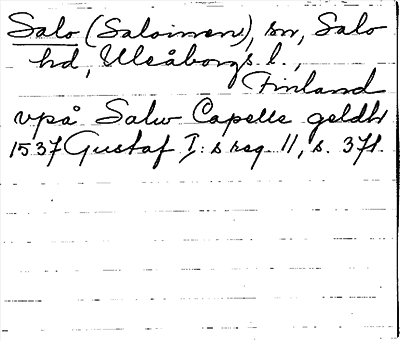 Salo (Saloinen), sn, Salo
hd, Uleåborgs l.,
Finland
vpå Salw Capelle geldh
1537 Gustaf I:s reg 11, s. 371.